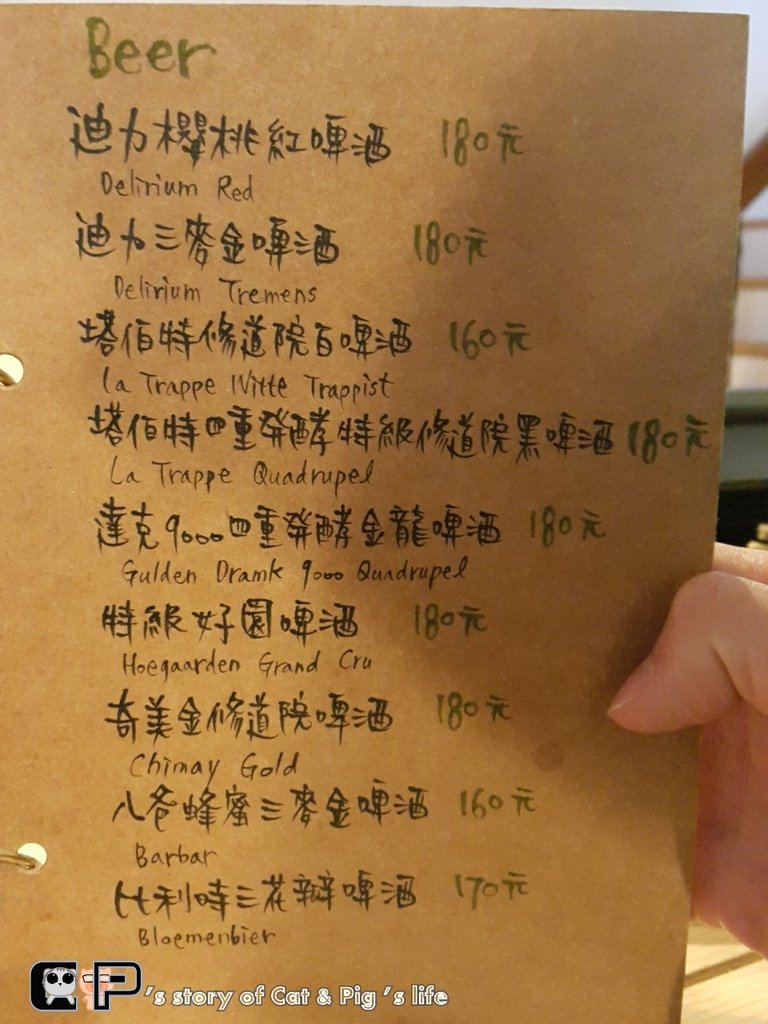 Beer
迪力櫻桃紅啤酒 180元
Delirium Red
迪力三麥金啤酒 180元
Delirium Tremens
塔伯特修道院白啤酒 160元
La Trappe Witte Trappist
塔伯特四重發酵特級修道院黑啤酒 180元
La Trappe Quadrupel
達克9000四重發酵金龍啤酒 180元
Gulden Dramk 9000 Quadrupel
特級好園啤酒 180元
Hoegaarden Grand Cru
奇美金修道院啤酒 180元
Chimay Gold
八爸蜂蜜三麥金啤酒 160元
Barbar
比利時三花瓣啤酒 170元
Bloemenbier
CP's story of Cat & Pig's life